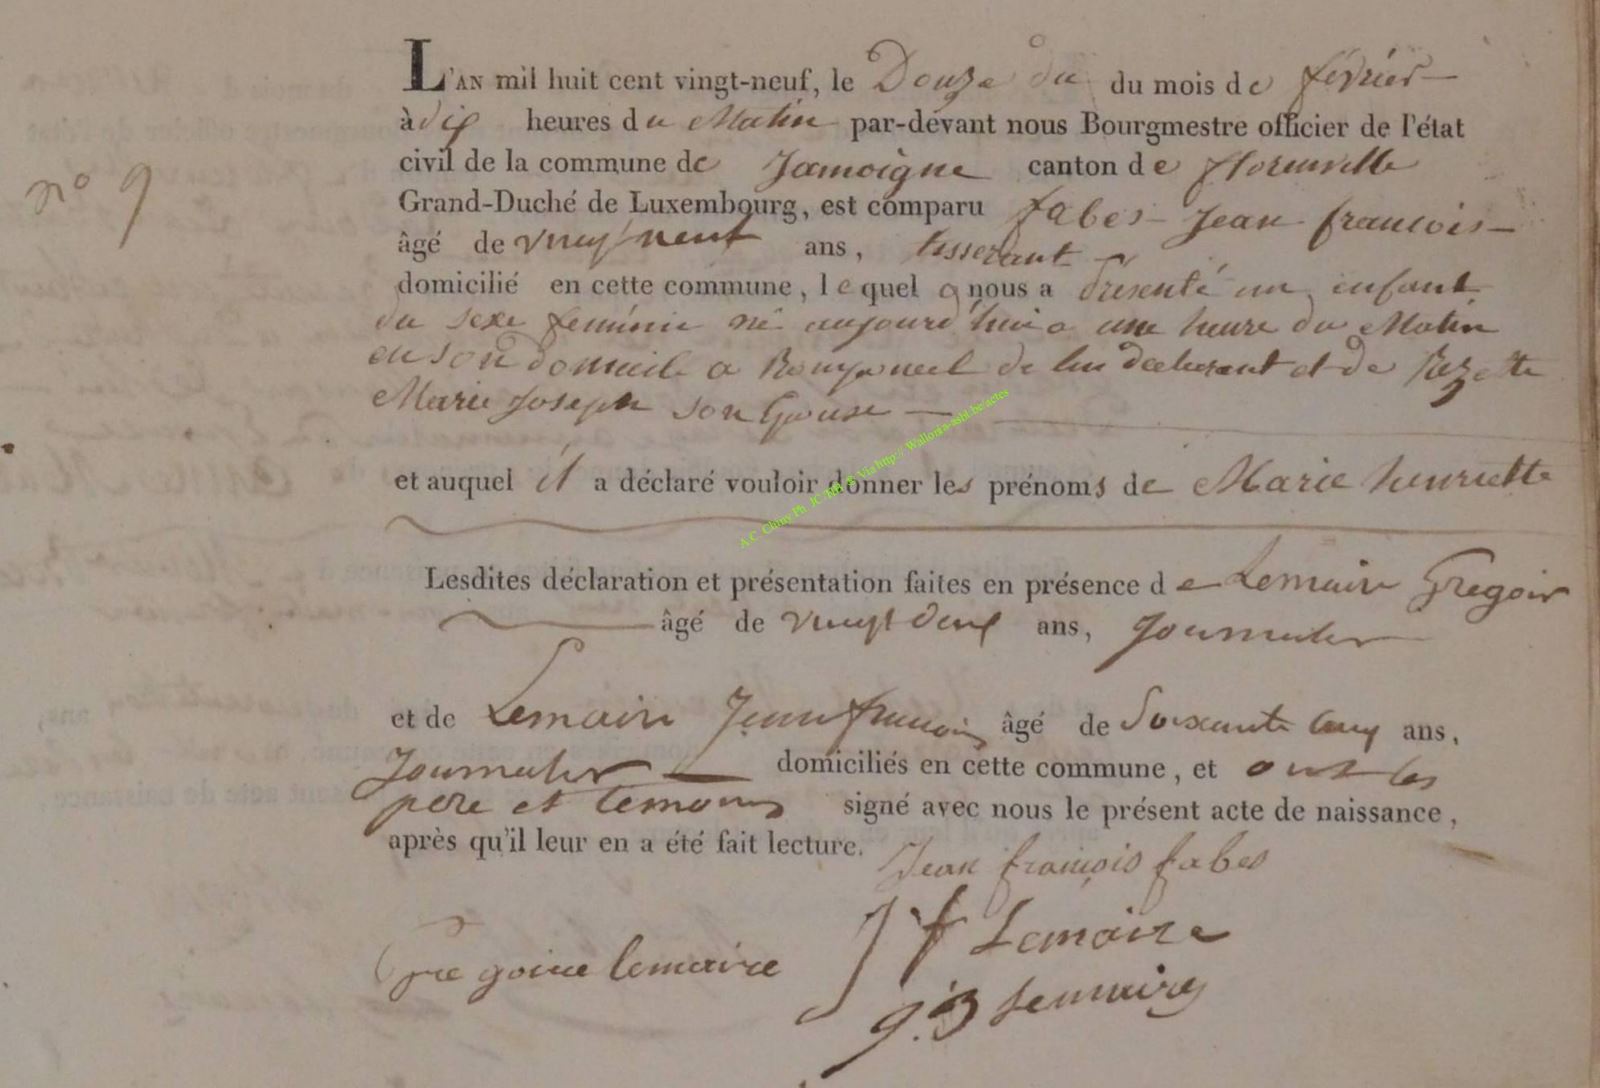 L'AN mil huit cent vingt-neuf, le Douze du du mois de février
à dix heures du Matin par-devant nous Bourgmestre officier de l'état
civil de la commune de Jamoigne canton de florenville
n° 9
Grand-Duché de Luxembourg, est comparu fabes Jean francois
âgé de vingt neuf ans, tisserant
domicilié en cette commune, lequel nous a présenté un enfant
du sexe feminin né aujourd'hui a une heure du Matin
en son domicile a de lui declarant et de Rozette
Marie Joseph son Epouse
et auquel il a déclaré vouloir donner les prénoms de Marie henriette
A.C. Chiny Ph. JC Via http:// Wallonia-asbl.be/actes
Lesdites déclaration et présentation faites en présence de Lemaire Gregoir
âgé de vingt deux ans, Journalier
et de Lemaire Jean francois âgé de Soixante cinq ans,
Journalier domiciliés en cette commune, et ont les
pere et temoins signé avec nous le présent acte de naissance,
après qu'il leur en a été fait lecture.
Jean françois fabes
J f Lemaire
Gre goire lemaire